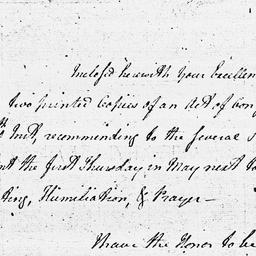 Inclosed herewith your Excellen
two printed Copies of an Act of Con
Inst, recommending to the several S
the first Thursday in May next to
ting, Humiliation, & Prayer—
I have the Honor to be